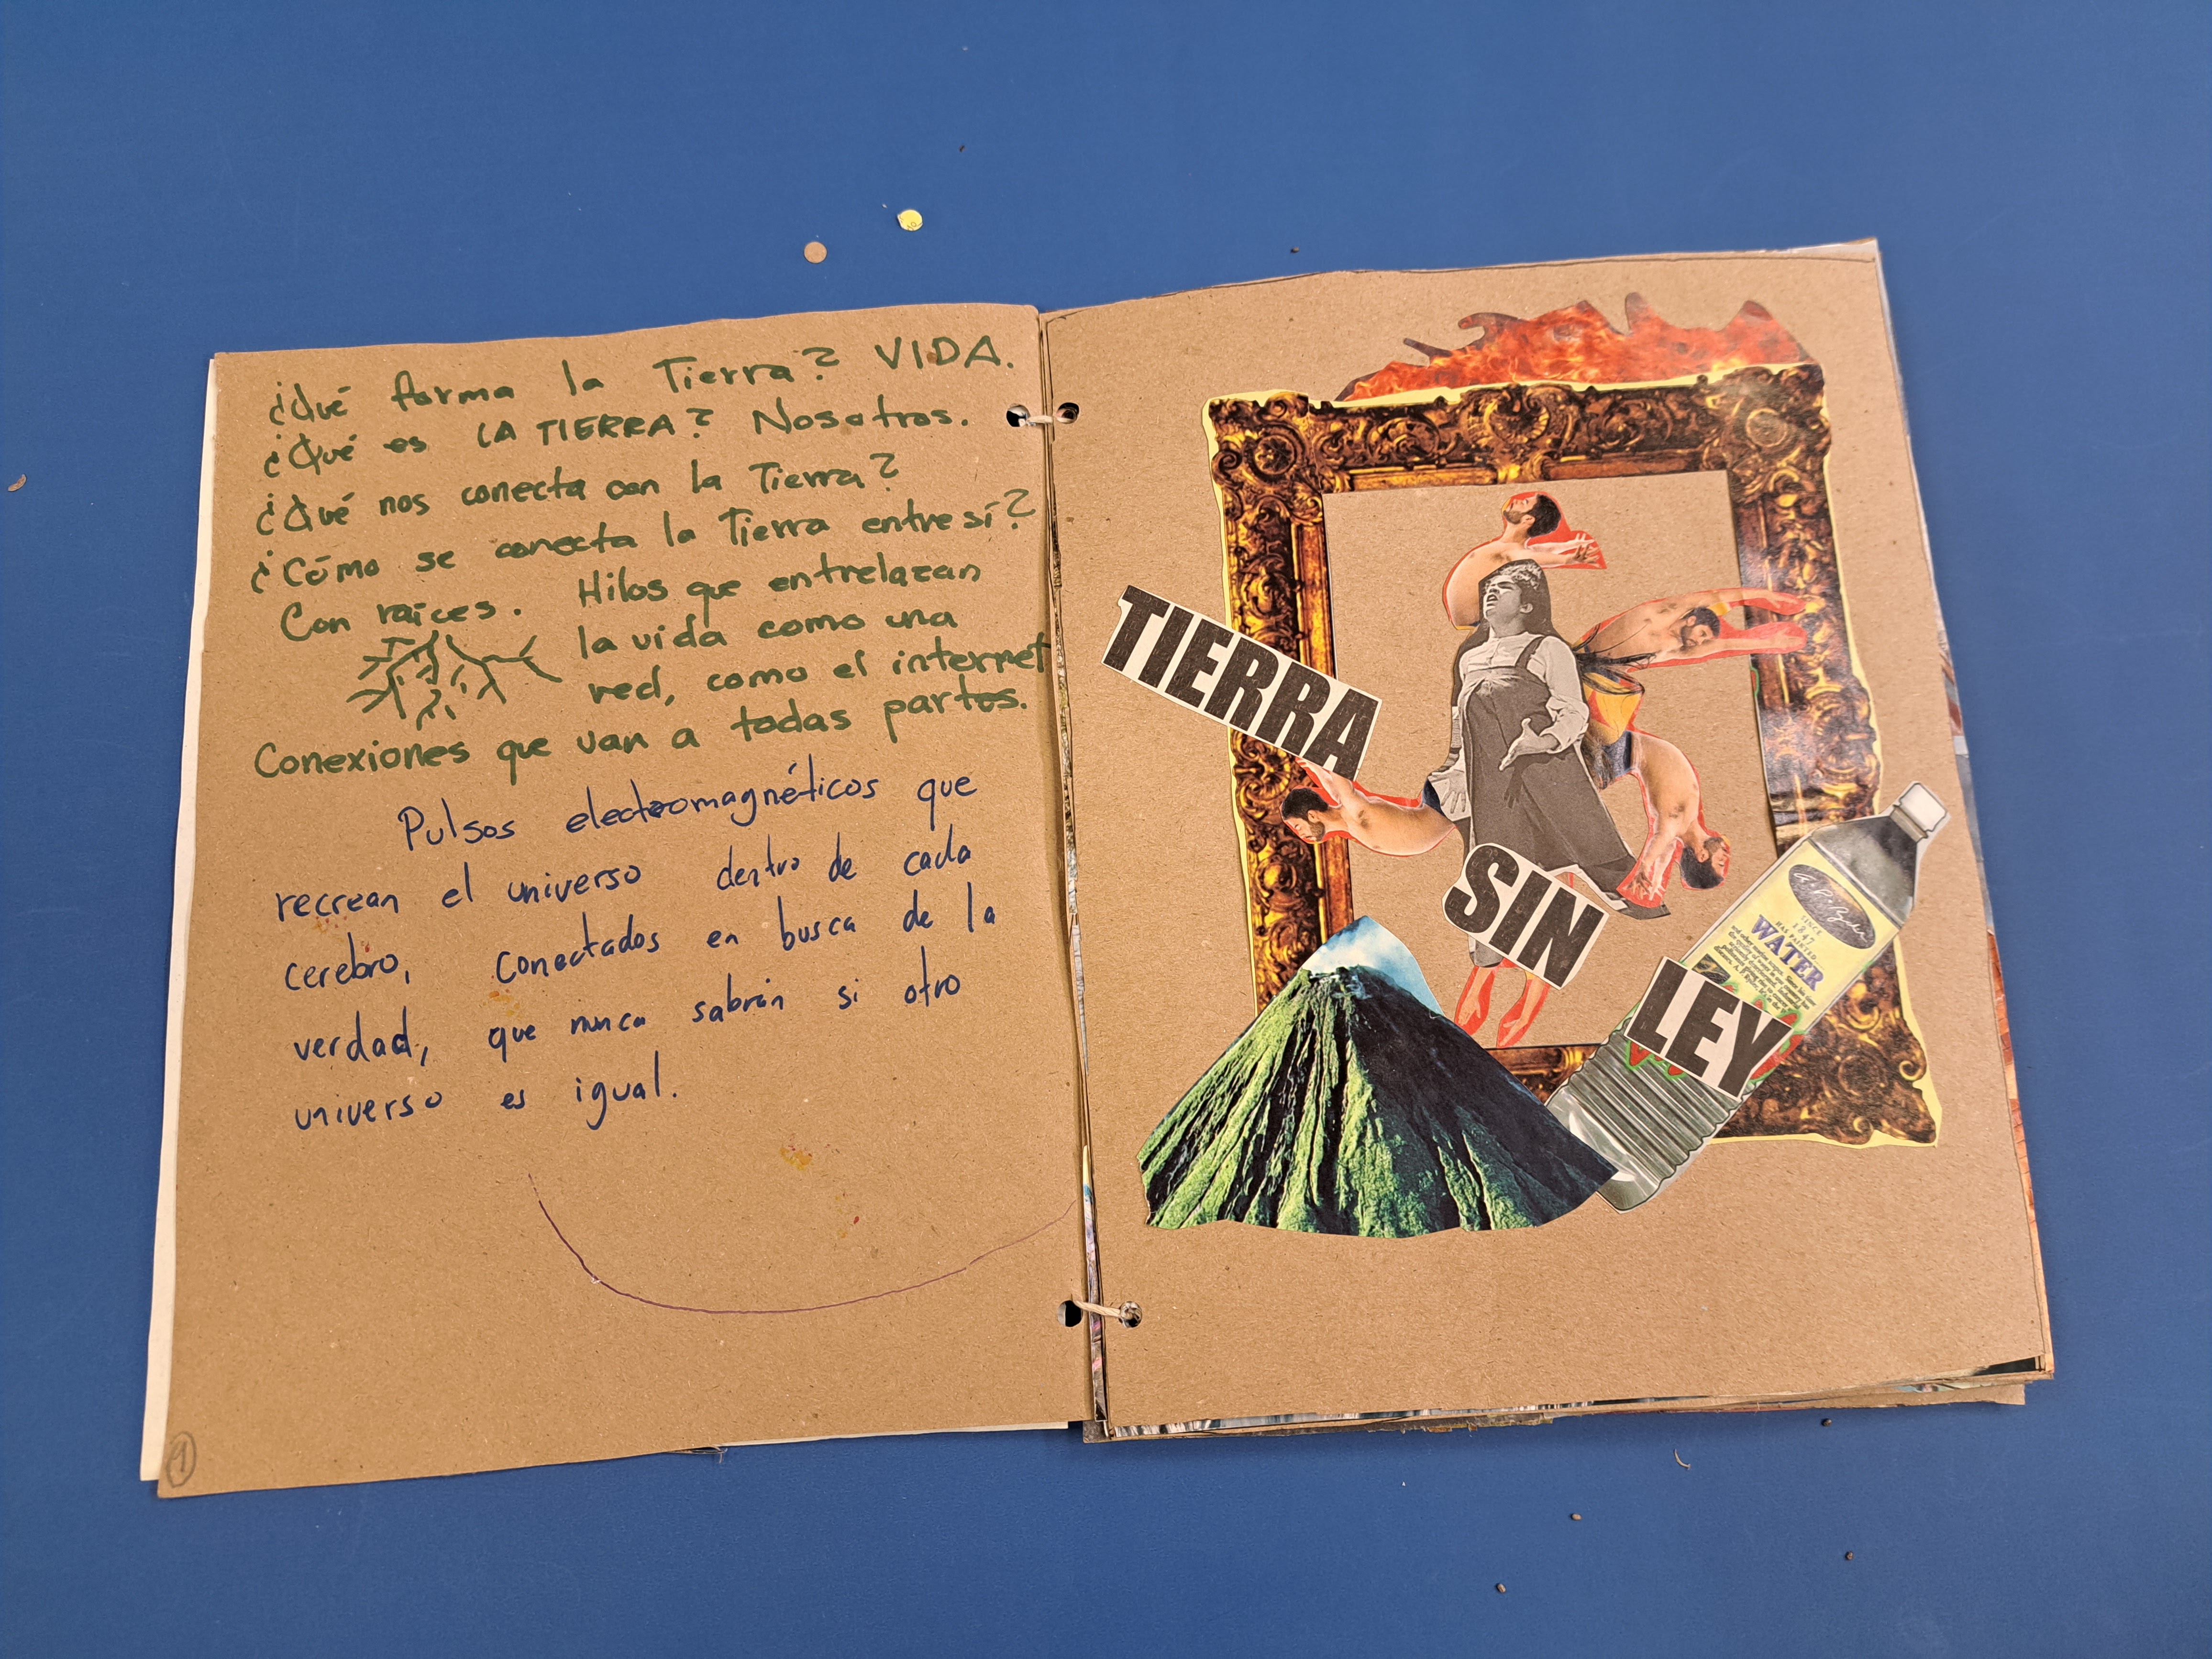 ¿Qué forma la Tierra? VIDA.
¿Qué es LA TIERRA? Nosotros.
¿Qué nos conecta con la Tierra?
¿Cómo se conecta la Tierra entre sí?
Con raíces. Hilos que entrelazan
la vida como una
red, como el internet
Conexiones que van a todas partes.
Pulsos electromagnéticos que
recrean el universo dentro de cada
cerebro, conectados en busca de la
verdad, que nunca sabrán si otro
universo es igual.
1
TIERRA
SIN
LEY
SINCE
1847
HAS PAINTED
WATER